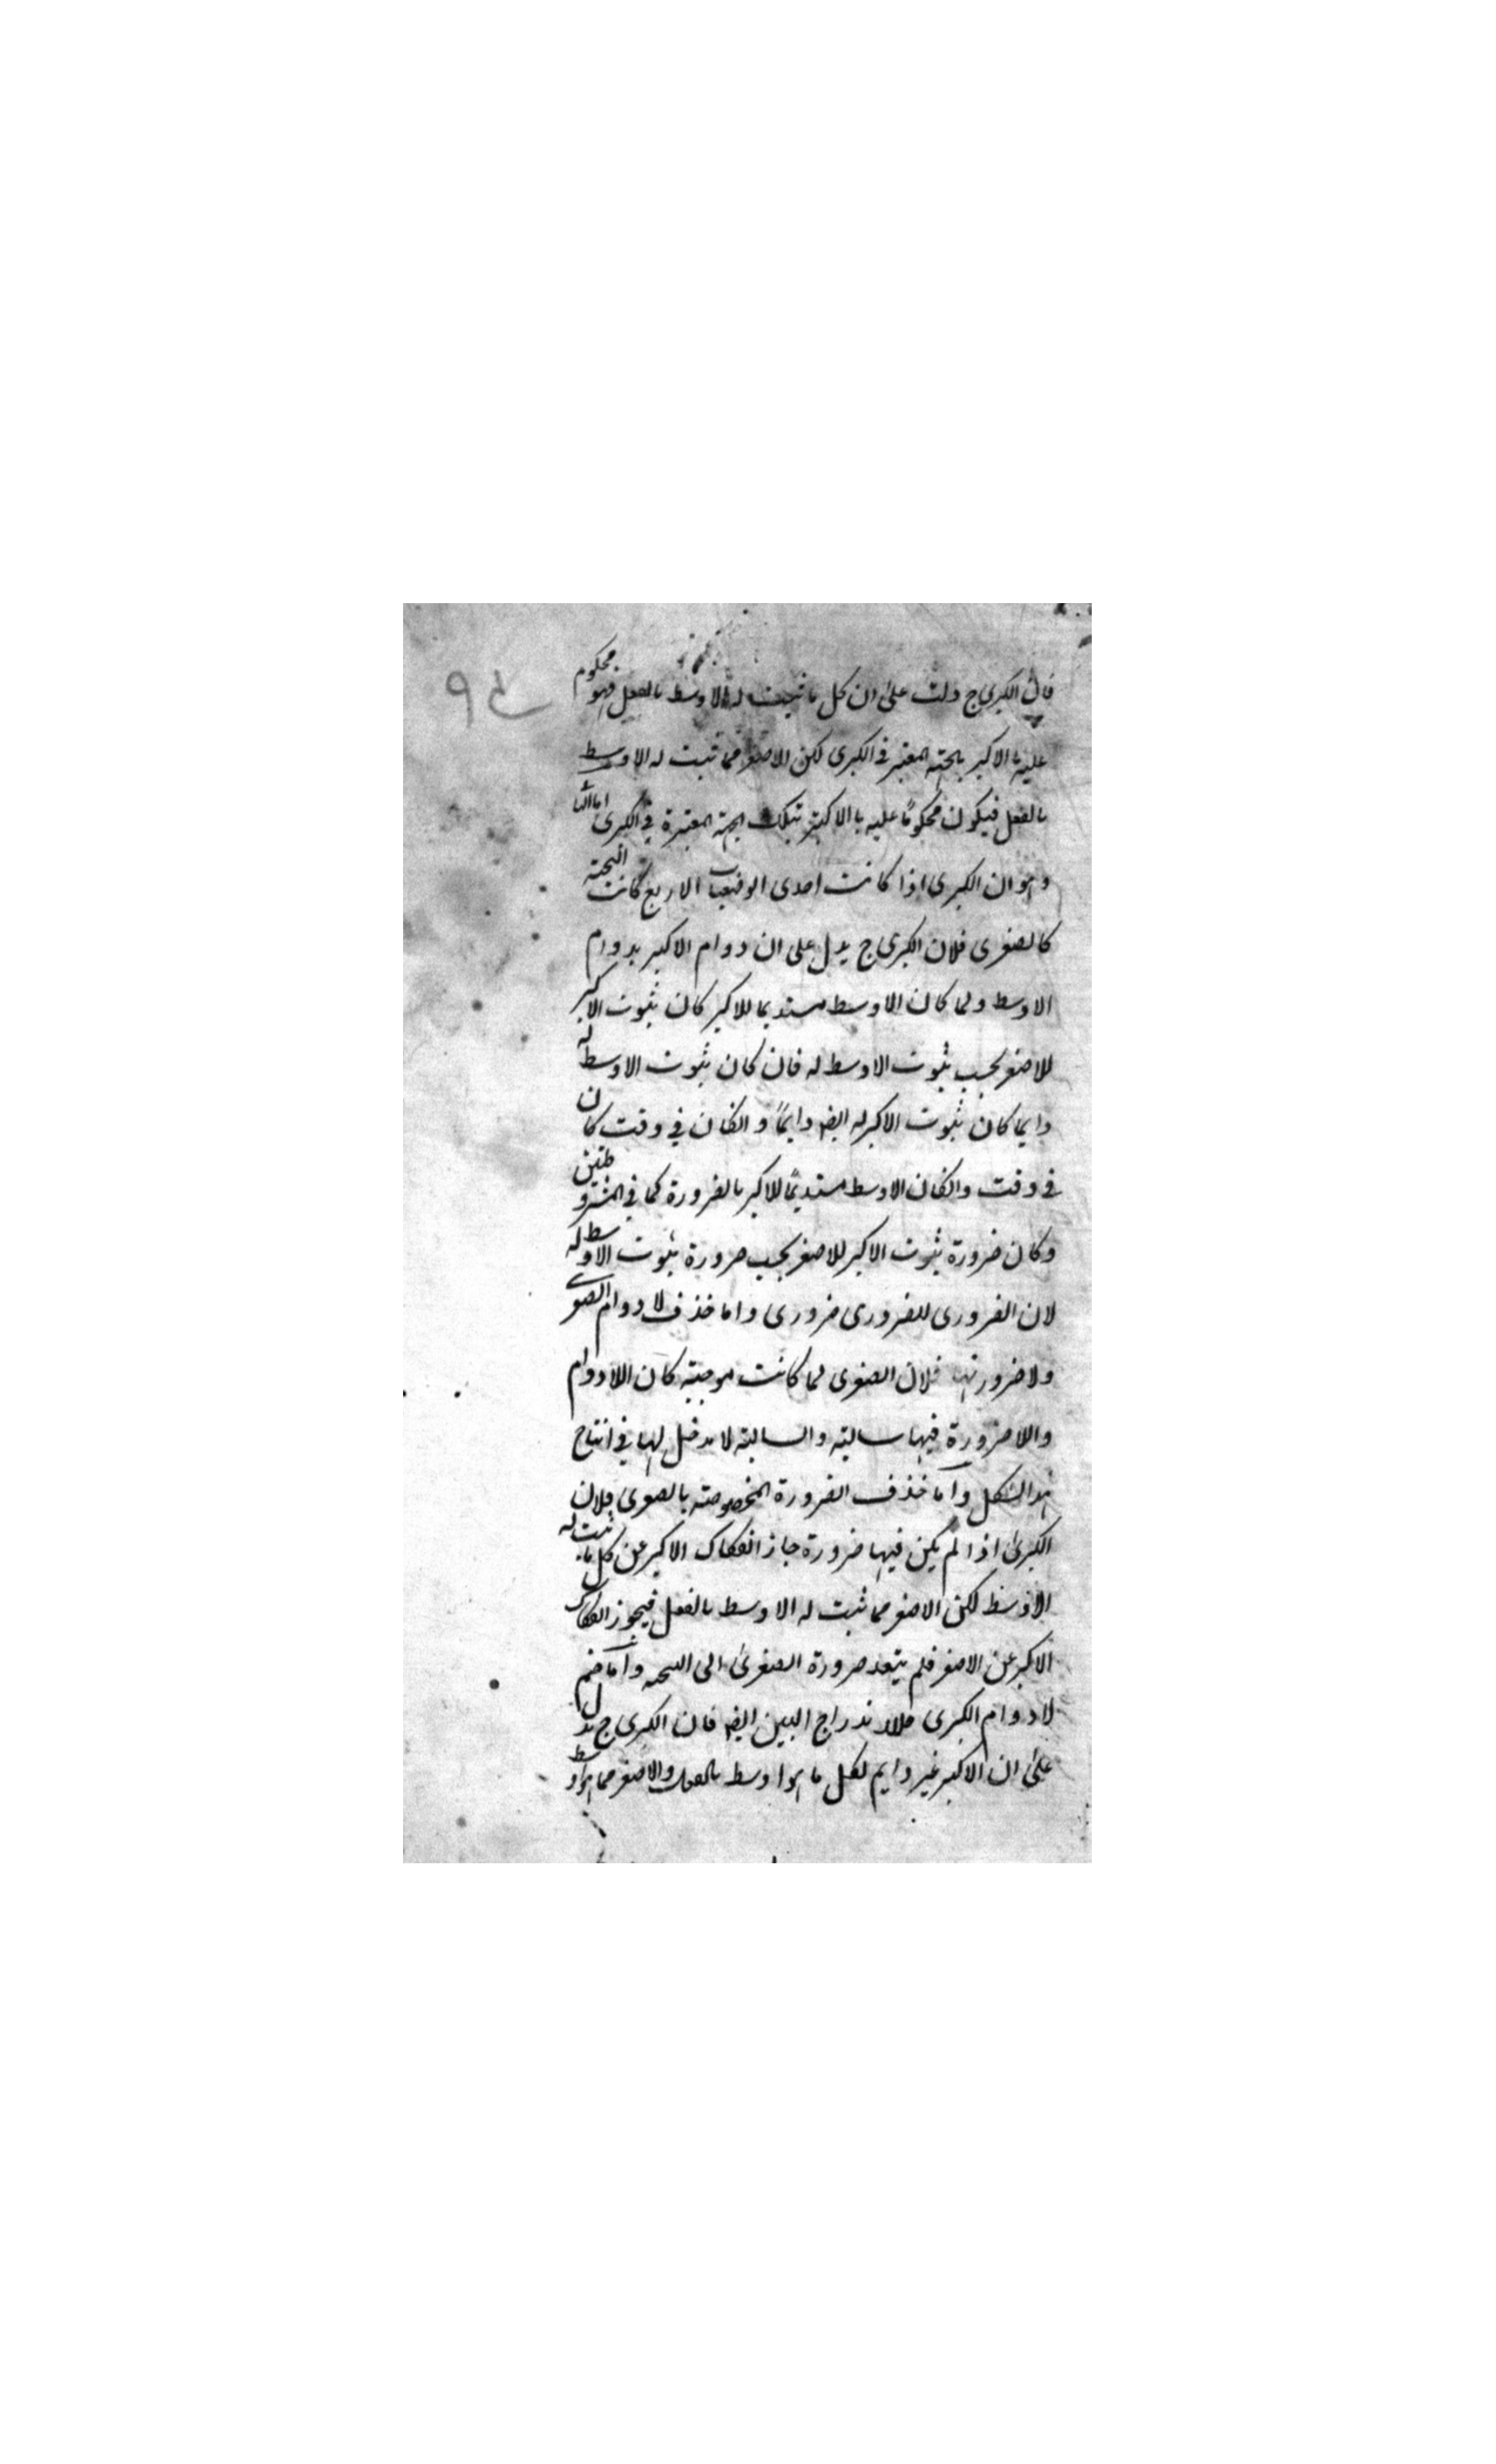 فان الكبرى ح دلت على ان كل ما ثبت له الاوسط بالفعل فهو محكوم
عليه بالاكبر بالجهة المعتبر فى الكبرى لكن الاصغر مما ثبت له الاوسط
بالفعل فيكون محكومًا عليه بالاكبر بتلك الجهة المعتبرة فى الكبرى اما الثا
وهو ان الكبرى اذا كانت احدى الوصفيات الاربع كانت النتيجة
كالصغرى فلان الكبرى ح يدل على ان دوام الاكبر بدوام
الاوسط ولما كان الاوسط مستديما للاكبر كان ثبوت الاكبر
للاصغر بحسب ثبوت الاوسط له فان كان ثبوت الاوسط له
دايما كان ثبوت الاكبر له ايضه دايمًا و الكان فى وقت كان
فى وقت و الكان الاوسط مستديمًا للاكبر بالضرورة كما فى المشروطتين
وكان ضرورة ثبوت الاكبر للاصغر بحسب ضرورة ثبوت الاوسط له
لان الضرورى للضرورى ضرورى و اما حذف لا دوام الصغرى
ولا ضرورتها فلان الصغرى لما كانت موجبة كان اللادوام
واللاضرورة فيها سالبة والسالبة لا مدخل لها فى انتاج
هذا الشكل وآما حذف الضرورة المخصوصة بالصغرى فلان
الكبرى اذا لم يكن فيها ضرورة جاز انفكاك الاكبر عن كل ما ثبت له
الاوسط لكن الاصغر مما ثبت له الاوسط بالفعل فيجوز انفكاك
الاكبر عن الاصغر فلم يتعد ضرورة الصغرى الى النتيجة وآما ضم
لا دوام الكبرى فلاندراج البين ايضه فان الكبرى ح تدل
على ان الاكبر غير دايم لكل ما هو اوسط بالفعل والاصغر مما هو اوسط